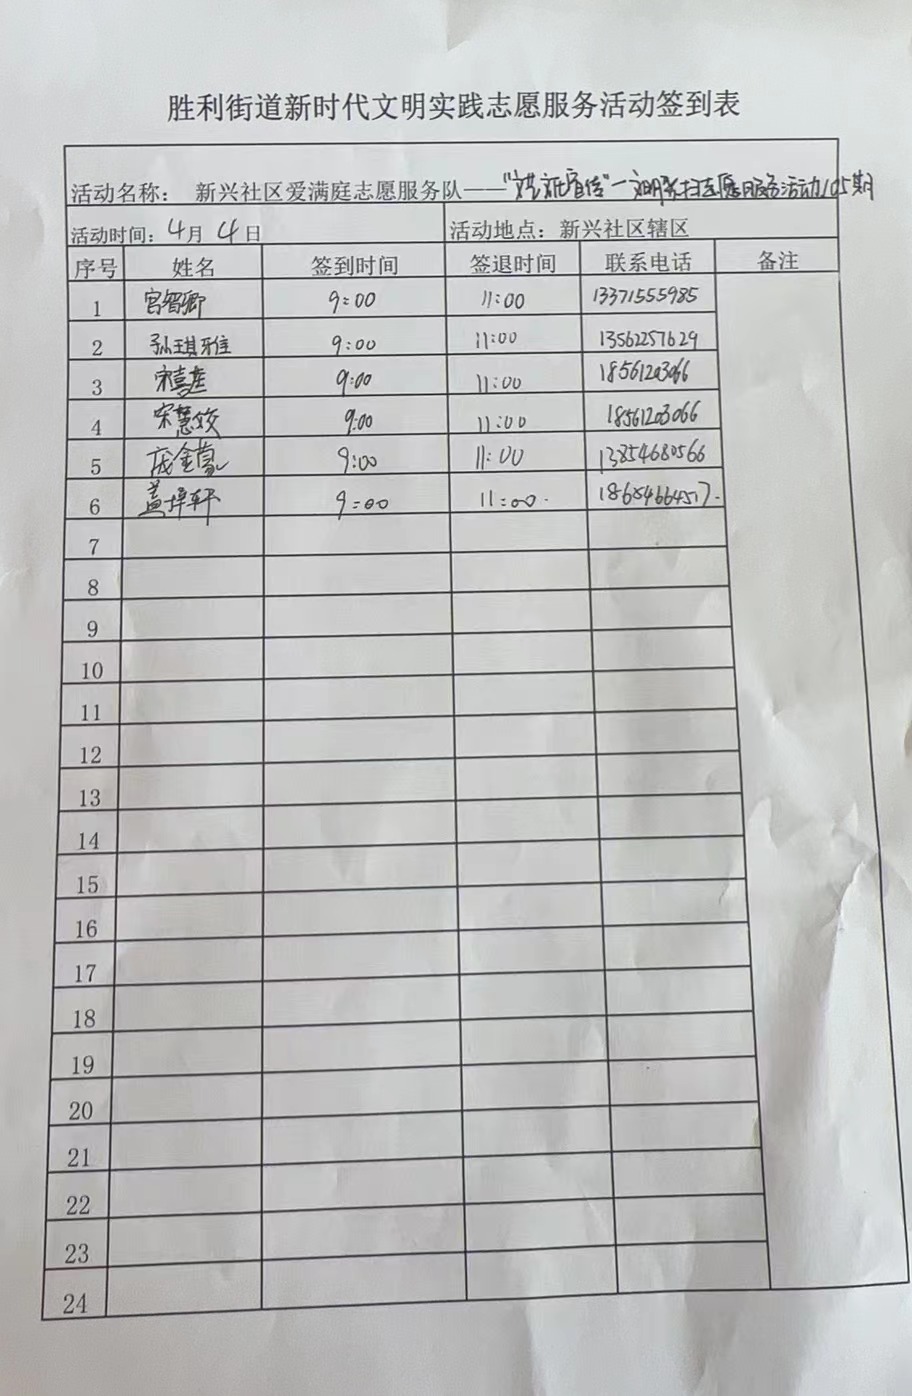 胜利街道新时代文明实践志愿服务活动签到表
活动名称： 新兴社区爱满庭志愿服务队——“文明祭扫志愿服务活动105期
活动时间：4月 4日 活动地点：新兴社区辖区
序号 姓名 签到时间 签退时间 联系电话 备注
1 宫智卿 9:00 11:00 13371555985
2 孙琪雅 9:00 11:00 13562257629
3 宋喜 9:00 11:00 18561203066
4 宋慧姣 9:00 11:00 18561203066
5 庞金 9:00 11:00 13854680566
6 盖 轩 9:00 11:00. 18654664517.
7
8
9
10
11
12
13
14
15
16
17
18
19
20
21
22
23
24